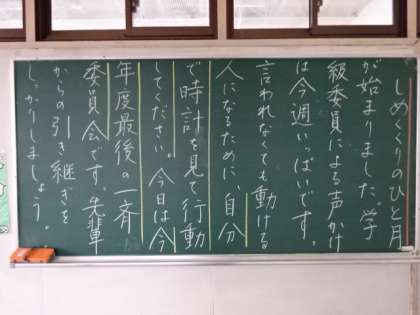 しめくくりのひと月
が始まりました。学
級委員による声かけ
は今週いっぱいです。
言われなくても動ける
人になるために、自分
で時計を見て行動
してください。今日は今
年度最後の一斉
委員会です。先輩
からの引き継ぎを
しっかりしましょう。